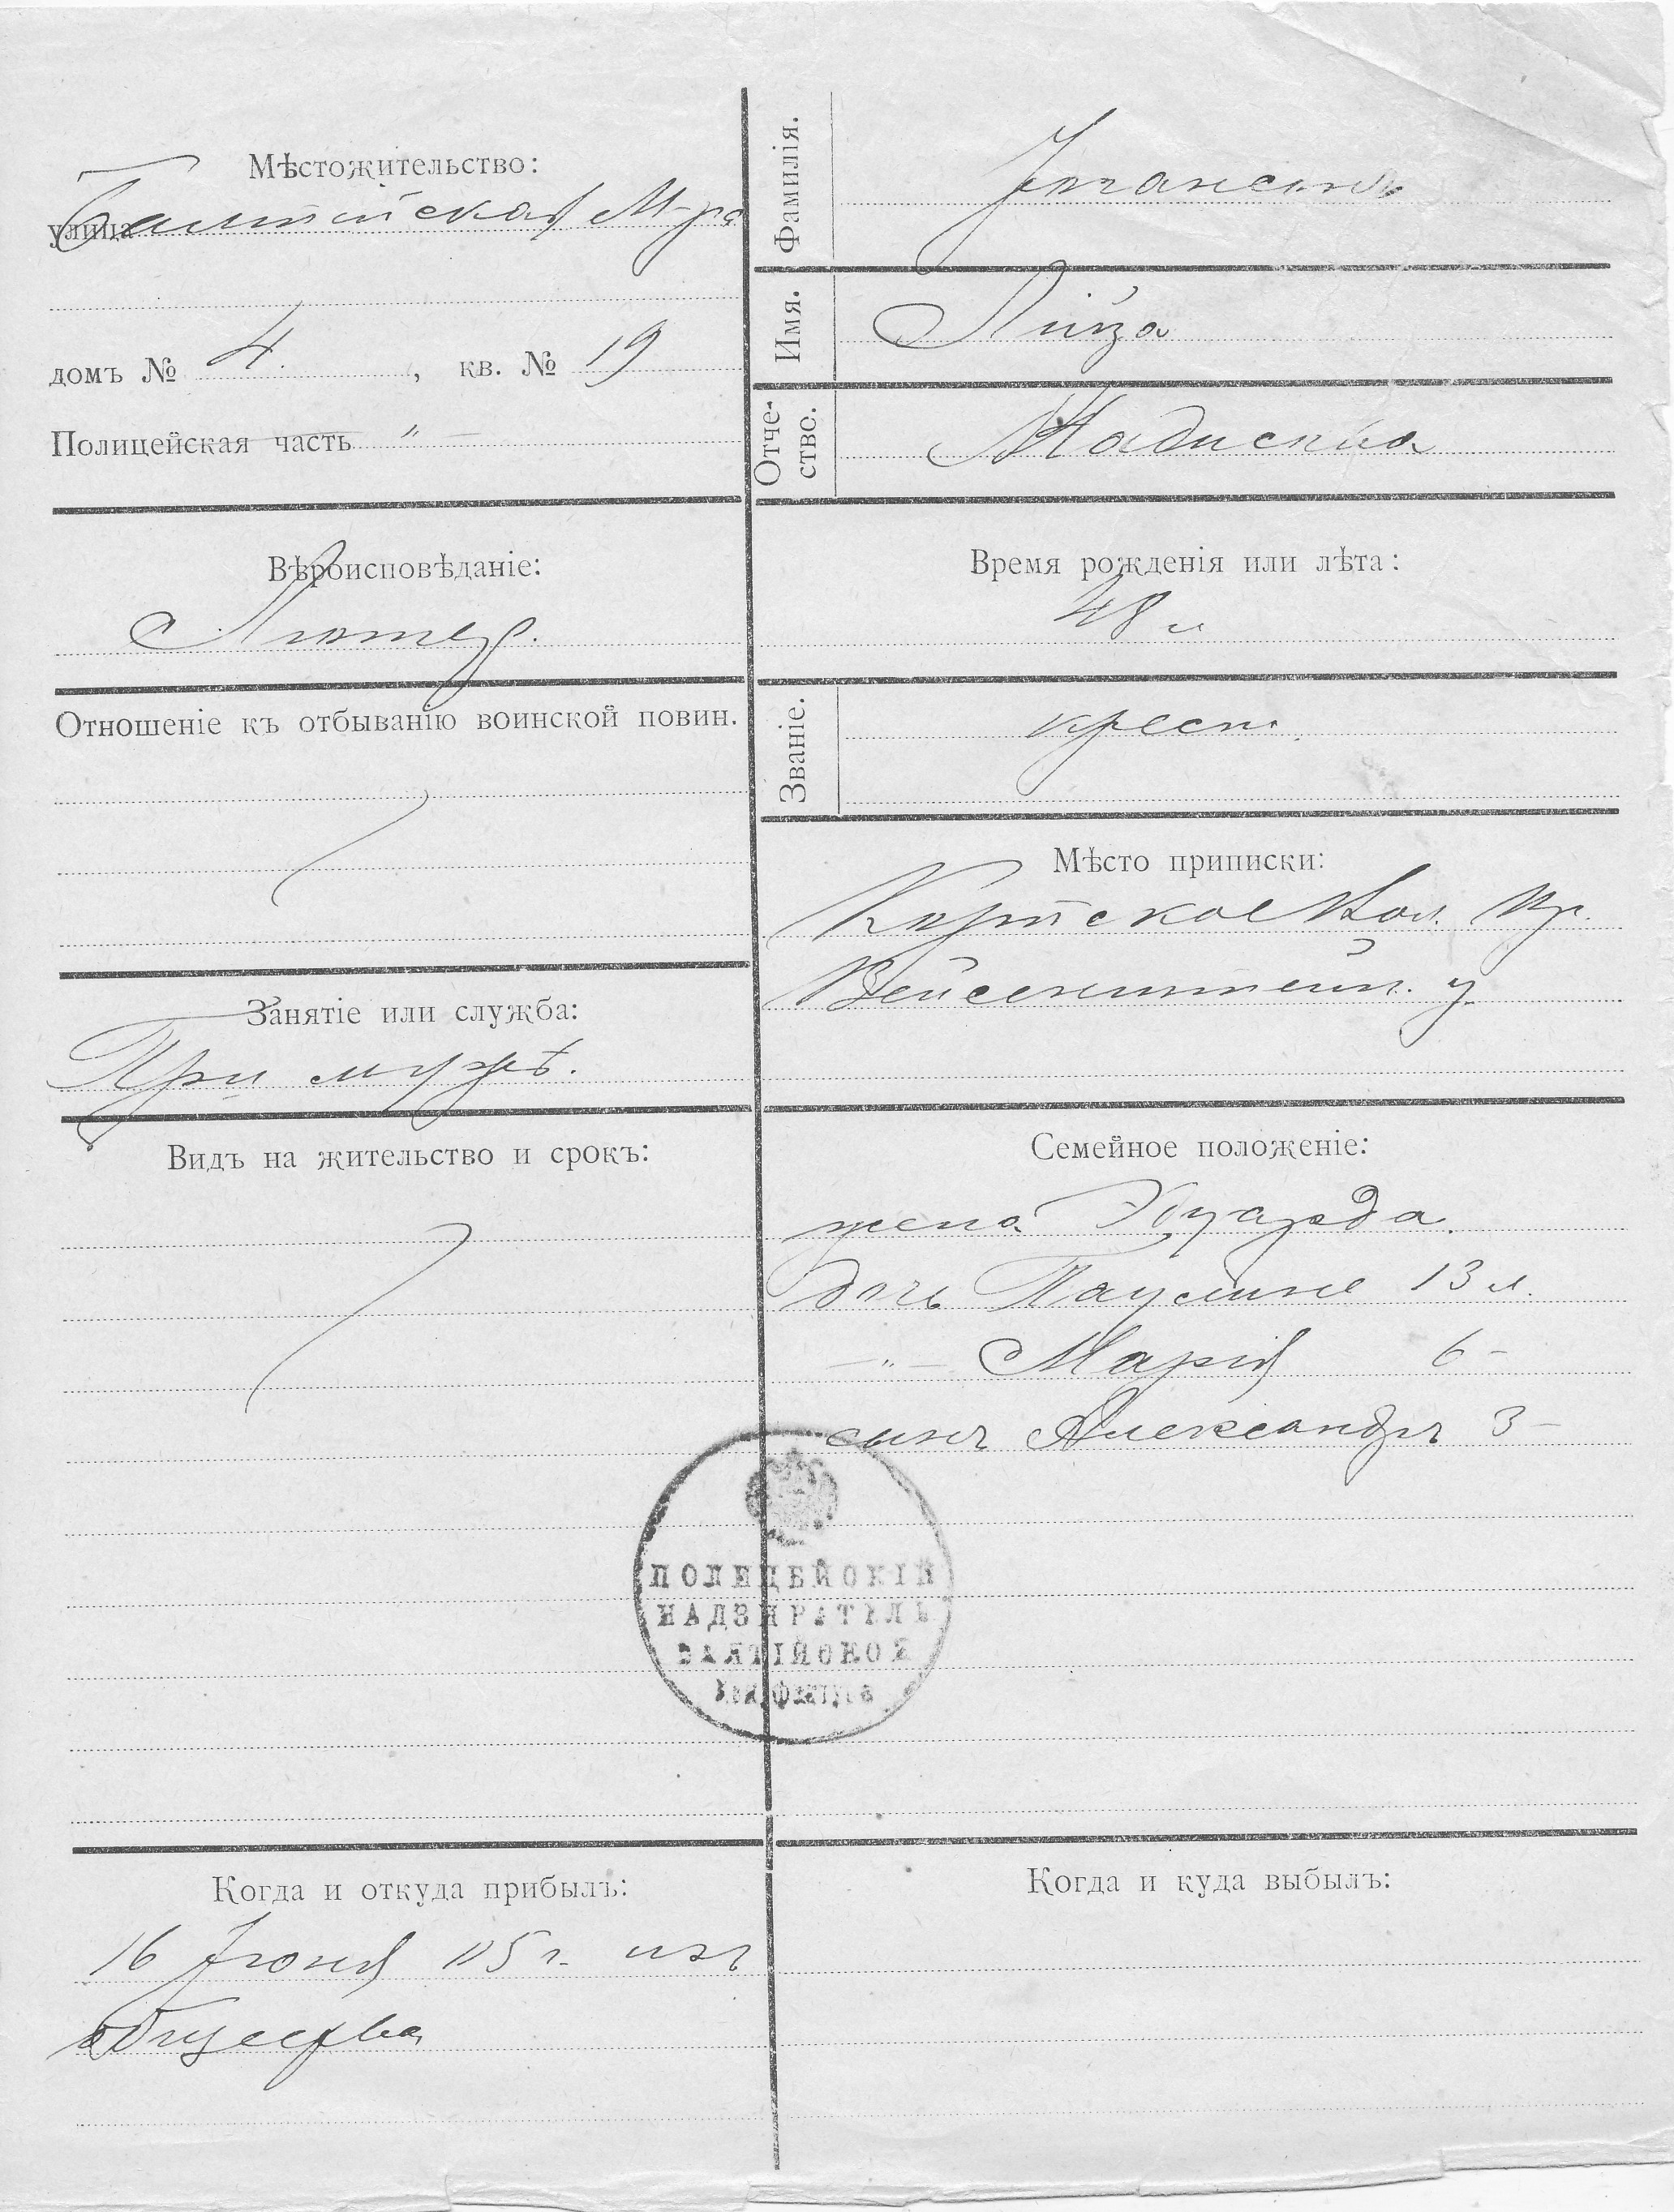 Мѣстожительство:
улица Балтійская М-ра
домъ № 4. , кв. № 19
Полицейская часть "
Вѣроисповѣданіе:
Лютер.
Отношеніе къ отбыванію воинской повин.
Занятіе или служба:
При мужѣ.
Видъ на жительство и срокъ:
Фамилія. Іогансонъ
Имя. Лийза
Отче-
ство. Мадисова
Время рожденія или лѣта:
48 л
Званіе. крест.
Мѣсто приписки:
Вейсенштейн. у.
Семейное положеніе:
жена Эдуарда.
дочь Паулине 13 л.
—"— Марія 6 –
сынъ Александръ 3 –
ПОЛИЦЕЙСКІЙ
НАДЗИРАТЕЛЬ
БАЛТІЙСКОЙ
Ман.фактуры
Когда и откуда прибылъ:
16 Іюня г. изъ
общества
Когда и куда выбылъ: